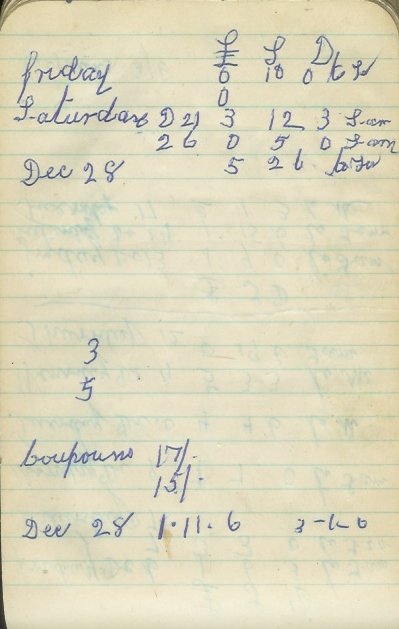 £ S D
Friday 0 10 0 to Jo
0
Saturday D 21 3 12 3 Sam
26 0 5 0 Sam
Dec 28 5 2 6 to Jo
3
5
Coupouns 17/-
15/-
Dec 28 1.11.6 3-1-0